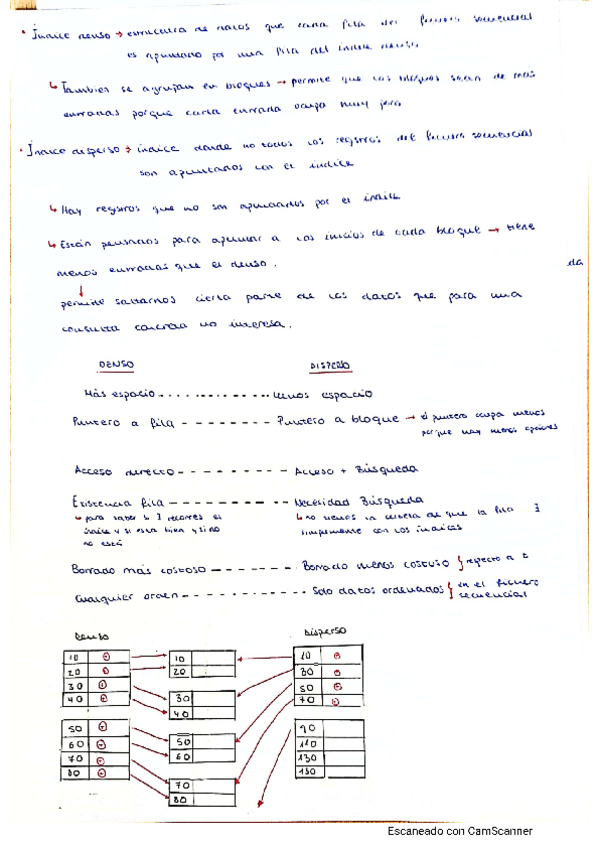 · Índice denso → estructura de datos que cada fila del fichero secuencial
es apuntado por una fila del índice denso
↳ También se agrupan en bloques → permite que los bloques sean de más
entradas porque cada entrada ocupa muy poco
· Índice disperso → índice donde no todos los registros del fichero secuencial
son apuntados con el índice
↳ Hay registros que no son apuntados por el índice
↳ Están pensados para apuntar a los inicios de cada bloque → tiene
menos entradas que el denso.
da
↓
permite saltarnos cierta parte de los datos que para una
consulta concreta no interesa.
DENSO DISPERSO
Más espacio - - - - - - - - Menos espacio
Puntero a fila - - - - - - - - Puntero a bloque → el puntero ocupa menos
porque hay menos opciones
Acceso directo - - - - - - - - Acceso + Búsqueda
Existencia fila - - - - - - - - Necesidad Búsqueda
↳ para saber si ∃ recorres el
índice y si está bien y si no
no está
↳ no tienes la certeza de que la fila ∃
simplemente con los índices
Borrado más costoso - - - - - - - - Borrado menos costoso } respecto a t
Cualquier orden - - - - - - - - Solo datos ordenados } en el fichero
secuencial
Denso Disperso
10
20
30
40
50
60
70
80
10
20
30
40
50
60
70
80
10
30
50
70
90
110
130
150
Escaneado con CamScanner